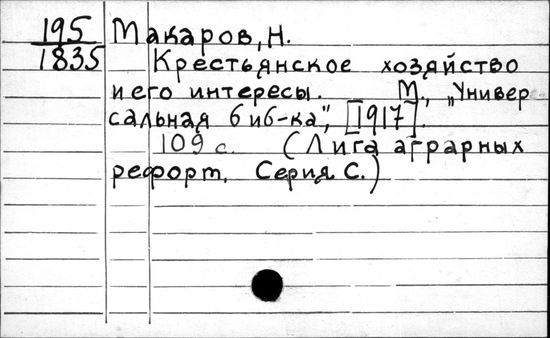 195 Макаров, Н.
1835 Крестьянское хозяйство
и его интересы. М., „Универ
сальная биб-ка", [1917].
109 с. (Лига аграрных
рефорт. Серия С.)